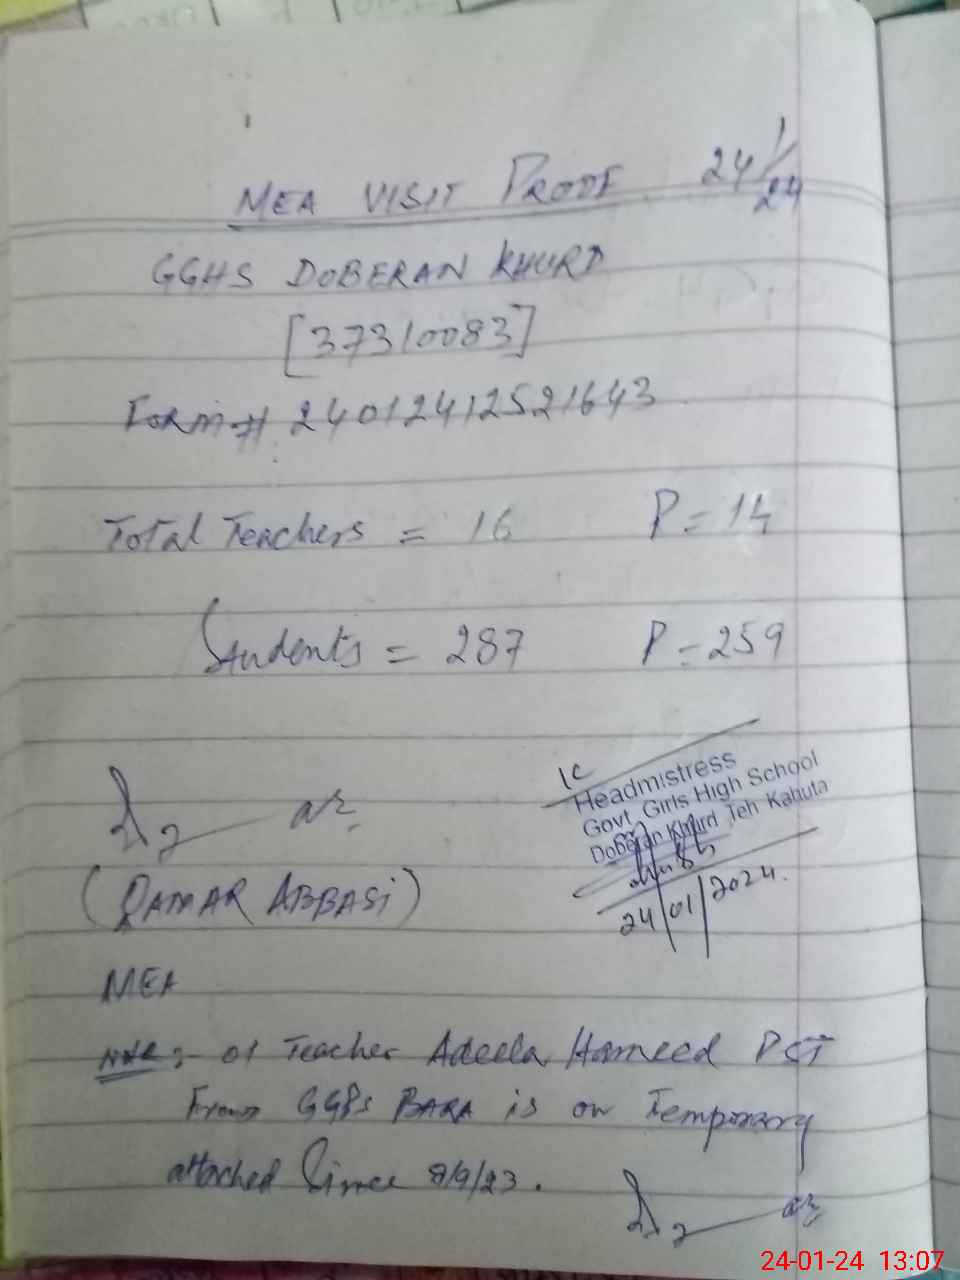 MEA VISIT PROOF 24/1/24
GGHS DOBERAN KHURD
[37310083]
Form # 24012412521643
Total Teachers = 16 P = 14
Students = 287 P = 259
Ic
Headmistress
Govt. Girls High School
Doberan Khurd Teh Kahuta
24/01/2024.
(QAMAR ABBASi)
MEA
Note :- 01 Teacher Adeela Hameed PST
From GGPS BARA is on Temporary
attached Since 8/9/23.
24-01-24 13:07